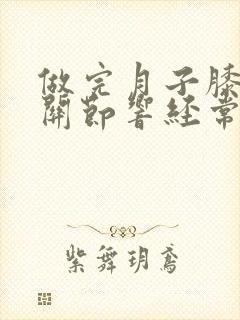 做完月子膝
關節響経常
紫舞玥鸢